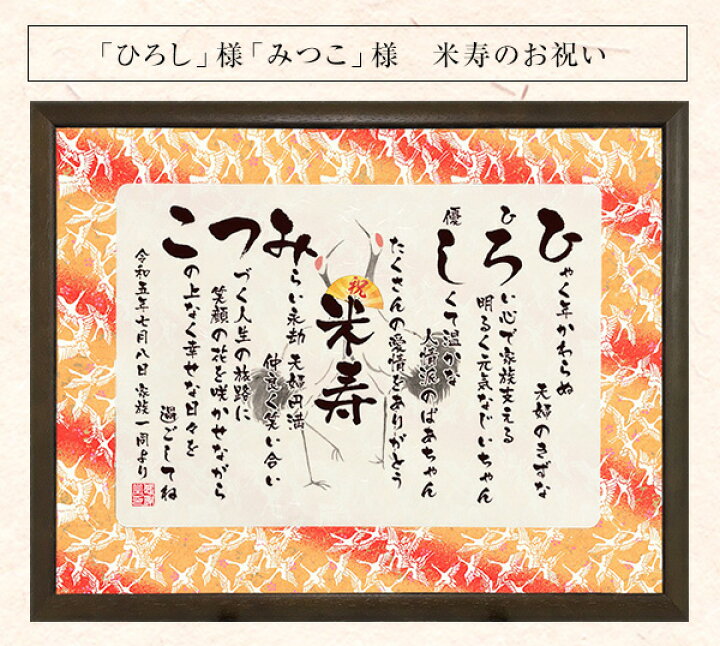 「ひろし」様「みつこ」様　米寿のお祝い
ひゃく年かわらぬ
夫婦のきずな
ひろい心で家族支える
明るく元気なじいちゃん
優しくて温かな
人情派のばあちゃん
たくさんの愛情をありがとう
祝
米寿
みらい永劫 夫婦円満
仲良く笑い合い
つづく人生の旅路に
笑顔の花を咲かせながら
この上なく幸せな日々を
過ごしてね
令和五年七月八日 家族一同より